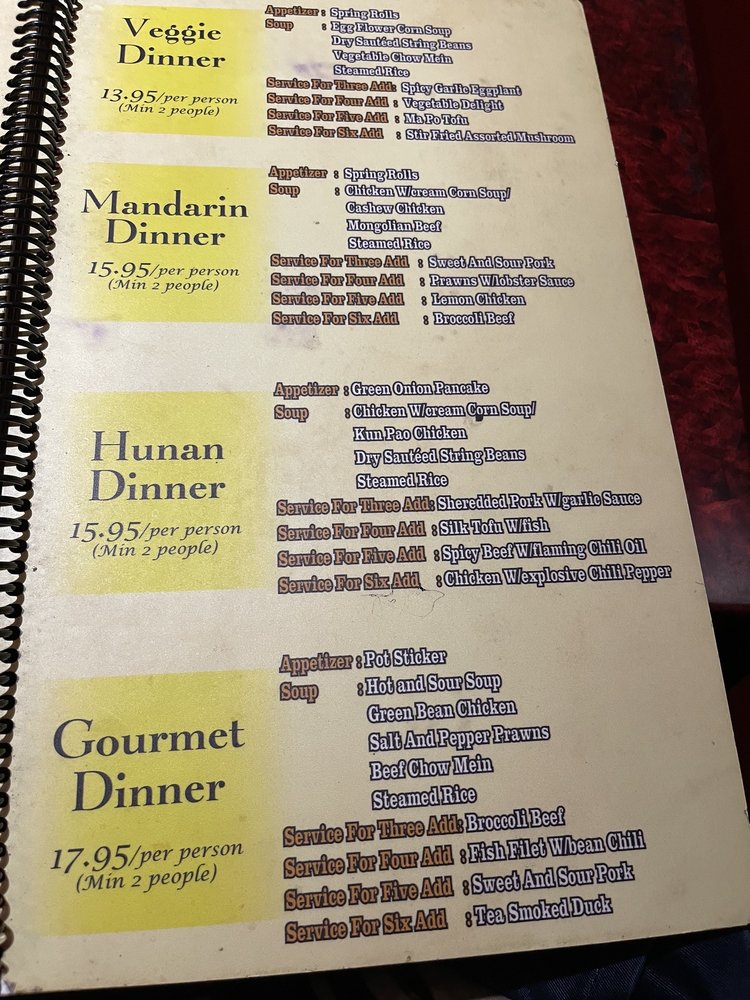 Veggie
Dinner
13.95/per person
(Min 2 people)
Appetizer : Spring Rolls
Soup : Egg Flower Corn Soup
Dry Sautéed String Beans
Vegetable Chow Mein
Steamed Rice
Service For Three Add: Spicy Garlic Eggplant
Service For Four Add : Vegetable Delight
Service For Five Add : Ma Po Tofu
Service For Six Add : Stir Fried Assorted Mushroom
Mandarin
Dinner
15.95/per person
(Min 2 people)
Appetizer : Spring Rolls
Soup : Chicken W/cream Corn Soup/
Cashew Chicken
Mongolian Beef
Steamed Rice
Service For Three Add : Sweet And Sour Pork
Service For Four Add : Prawns W/lobster Sauce
Service For Five Add : Lemon Chicken
Service For Six Add : Broccoli Beef
Hunan
Dinner
15.95/per person
(Min 2 people)
Appetizer : Green Onion Pancake
Soup : Chicken W/cream Corn Soup/
Kun Pao Chicken
Dry Sautéed String Beans
Steamed Rice
Service For Three Add: Sheredded Pork W/garlic Sauce
Service For Four Add : Silk Tofu W/fish
Service For Five Add : Spicy Beef W/flaming Chili Oil
Service For Six Add : Chicken W/explosive Chili Pepper
Gourmet
Dinner
17.95/per person
(Min 2 people)
Appetizer : Pot Sticker
Soup : Hot and Sour Soup
Green Bean Chicken
Salt And Pepper Prawns
Beef Chow Mein
Steamed Rice
Service For Three Add: Broccoli Beef
Service For Four Add : Fish Filet W/bean Chili
Service For Five Add : Sweet And Sour Pork
Service For Six Add : Tea Smoked Duck